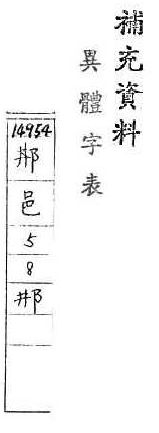 補充資料
異體字表
14954
邑
5
8